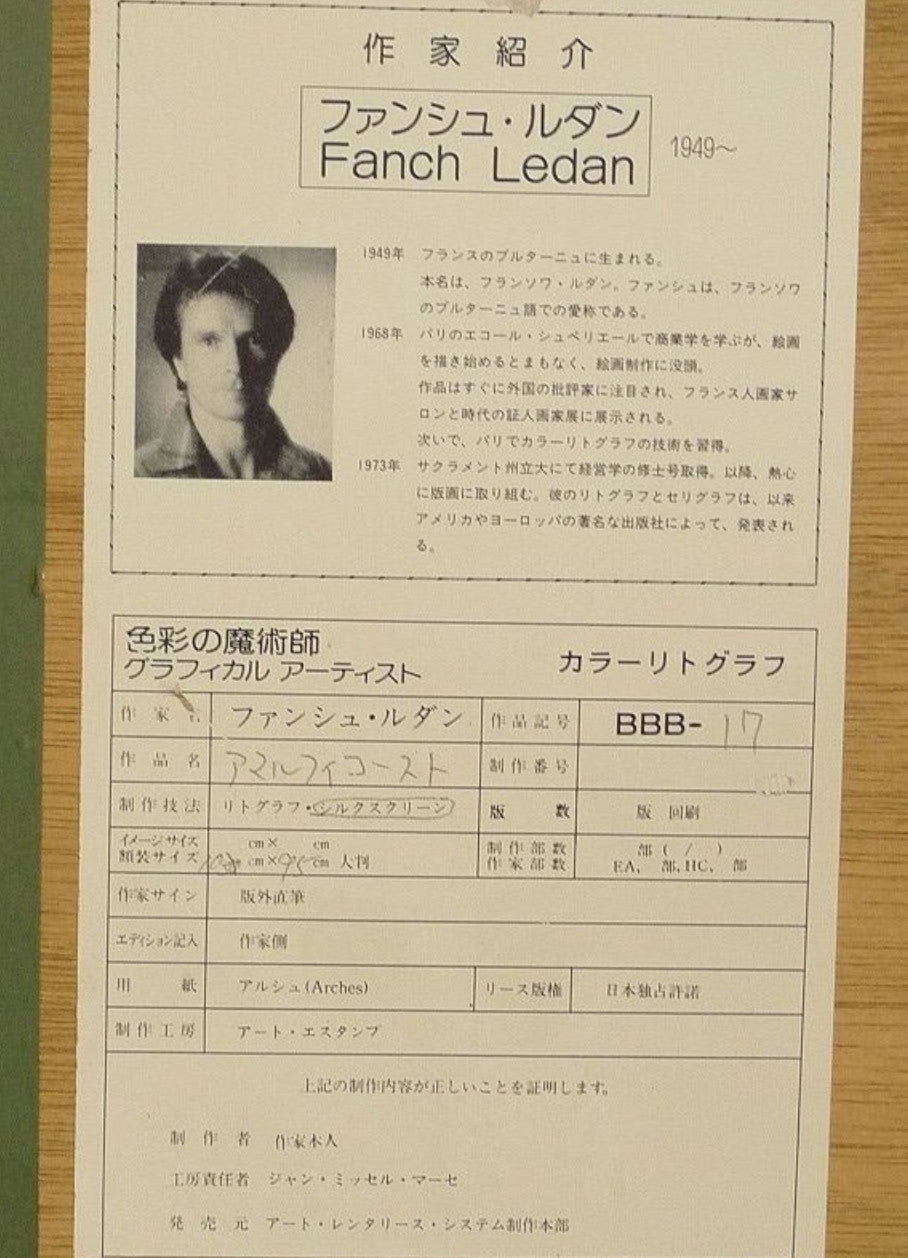 作家紹介
ファンシュ・ルダン
Fanch Ledan
1949～
1949年 フランスのブルターニュに生まれる。
本名は、フランソワ・ルダン。ファンシュは、フランソワ
のブルターニュ語での愛称である。
1968年 パリのエコール・シュペリエールで商業学を学ぶが、絵画
を描き始めるとまもなく、絵画制作に没頭。
作品はすぐに外国の批評家に注目され、フランス人画家サ
ロンと時代の証人画家展に展示される。
次いで、パリでカラーリトグラフの技術を習得。
1973年 サクラメント州立大にて経営学の修士号取得。以降、熱心
に版画に取り組む。彼のリトグラフとセリグラフは、以来
アメリカやヨーロッパの著名な出版社によって、発表され
る。
色彩の魔術師
グラフィカル アーティスト
カラーリトグラフ
作家名 ファンシュ・ルダン 作品記号 BBB-17
作品名 アマルフィコースト 制作番号
制作技法 リトグラフ・シルクスクリーン 版数 版 回刷
イメージサイズ cm× cm
額装サイズ cm×95cm 大判
制作部数 部( / )
作家部数 EA, 部,HC, 部
作家サイン 版外直筆
エディション記入 作家側
用紙 アルシュ(Arches) リース版権 日本独占許諾
制作工房 アート・エスタンプ
上記の制作内容が正しいことを証明します。
制作者 作家本人
工房責任者 ジャン・ミッセル・マーセ
発売元 アート・レンタリース・システム制作本部